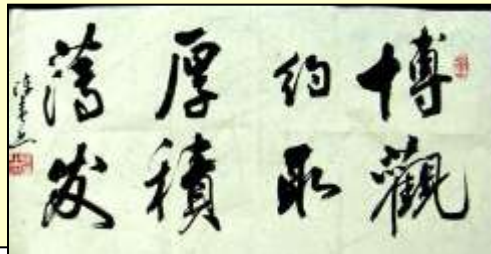 博觀
約取
厚積
薄发